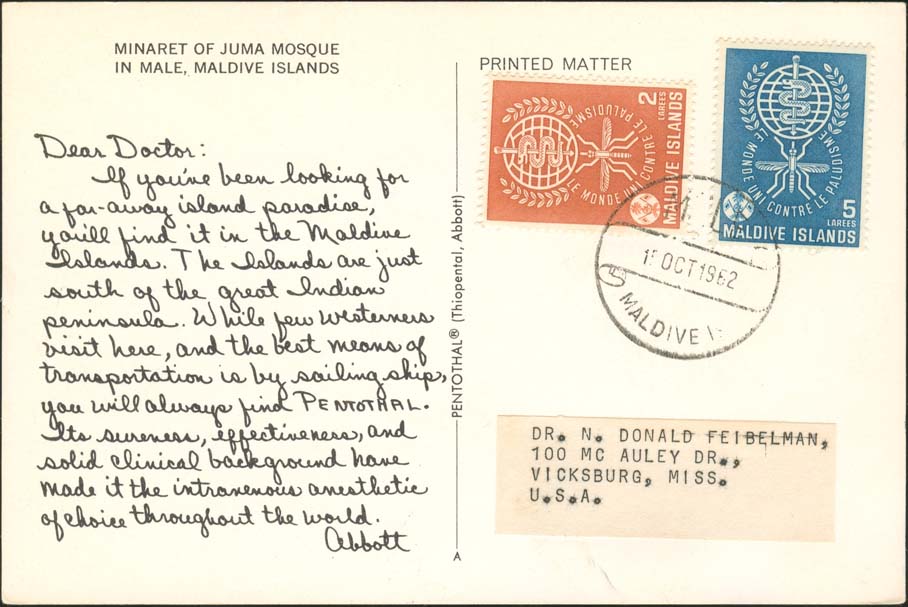 MINARET OF JUMA MOSQUE
IN MALE, MALDIVE ISLANDS
Dear Doctor:
If you've been looking for
a far-away island paradise,
you'll find it in the Maldive
Islands. The Islands are just
south of the great Indian
peninsula. While few westerners
visit here, and the best means of
transportation is by sailing ship,
you will always find PENTOTHAL.
Its sureness, effectiveness, and
solid clinical background have
made it the intravenous anesthetic
of choice throughout the world.
Abbott
PENTOTHAL® (Thiopental, Abbott)
A
PRINTED MATTER
2
LAREES
MALDIVE ISLANDS
LE MONDE UNI CONTRE LE PALUDISME
LE MONDE UNI CONTRE LE PALUDISME
5
LAREES
MALDIVE ISLANDS
OCT 1962
MALDIVE
DR. N. DONALD FEIBELMAN,
100 MC AULEY DR.,
VICKSBURG, MISS.
U.S.A.